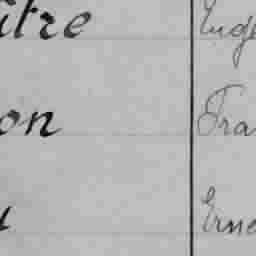 ître Eug
on Fra
Erne